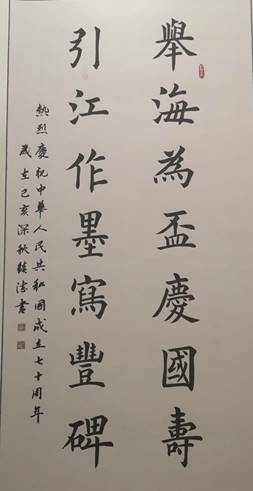 舉海為盃慶國壽
引江作墨寫豐碑
熱烈慶祝中華人民共和國成立七十周年
歲在己亥深秋
書